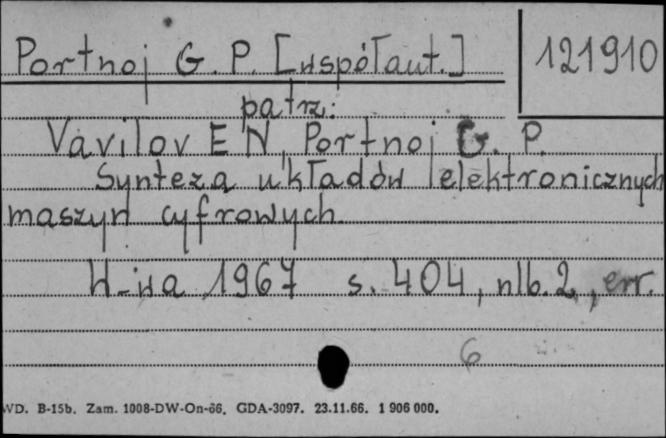 Portnoj G. P. [współaut.]
121910
patrz:
Vavilov E N, Portnoj G. P.
Synteza układów elektronicznych
maszyn cyfrowych.
W-wa 1967 s. 404, nlb. 2, err.
6
WD. B-15b. Zam. 1008-DW-On-66. GDA-3097. 23.11.66. 1 906 000.